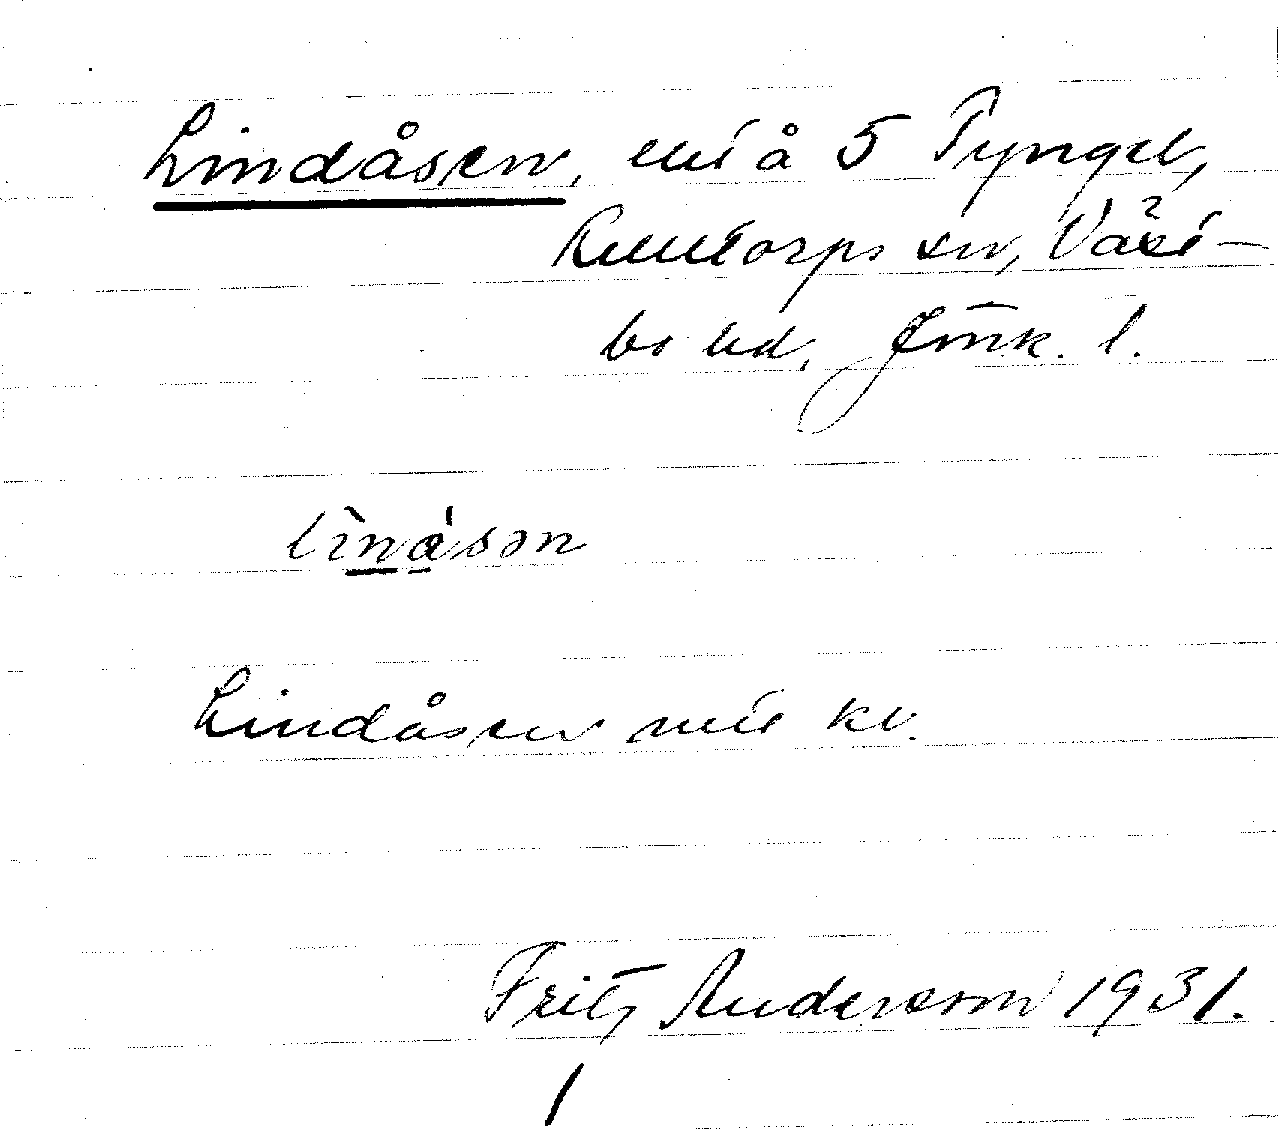 Lindåsen, å 5 Tyngel,
Kulltorps sn, Väst-
bo hd, Jönk. l.
lìnåsən
Lindåsen kv.
Fritz Andersson 1931.